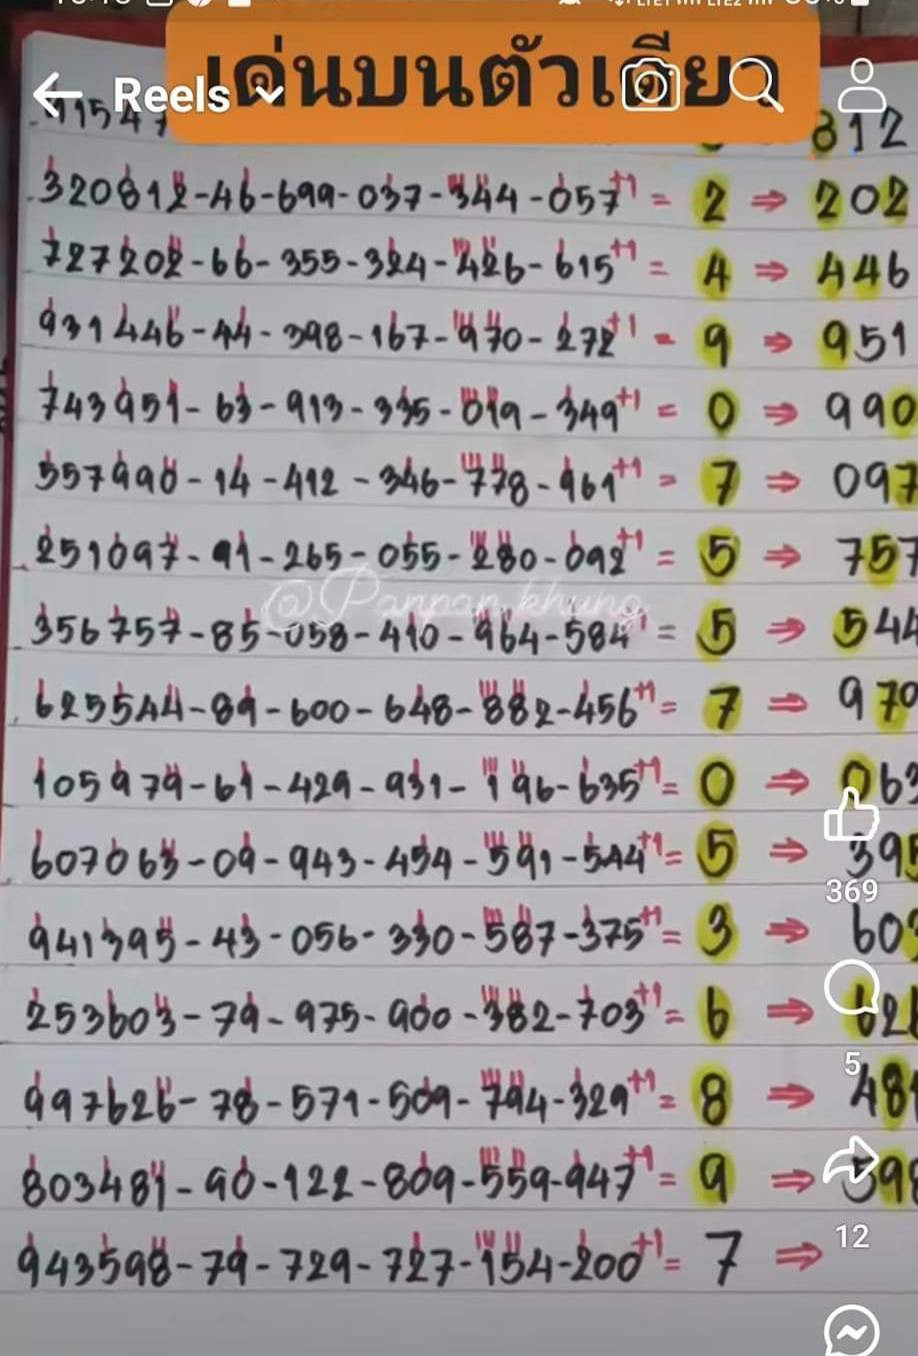 เด่นบนตัวเดียว
Reels
812
320812-46-699-037-344-057+1 = 2 ⇒ 202
727202-66-355-324-426-615+1 = 4 ⇒ 446
931446-44-398-167-970-272+1 = 9 ⇒ 951
743951-63-913-335-019-349+1 = 0 ⇒ 990
557990-14-412-346-778-961+1 = 7 ⇒ 097
251097-91-265-055-280-092+1 = 5 ⇒ 757
@Panpan khung
356757-85-058-410-964-584+1 = 5 ⇒ 544
625544-89-600-648-882-456+1 = 7 ⇒ 970
105979-61-429-931-196-635+1 = 0 ⇒ 063
607063-09-943-454-591-544+1 = 5 ⇒ 395
369
941395-43-056-330-587-375+1 = 3 ⇒ 603
253603-79-975-900-382-703+1 = 6 ⇒
5
997626-78-571-509-794-329+1 = 8 ⇒ 481
803481-90-122-809-559-947+1 = 9 ⇒ 598
12
943598-79-729-727-154-200+1 = 7 ⇒